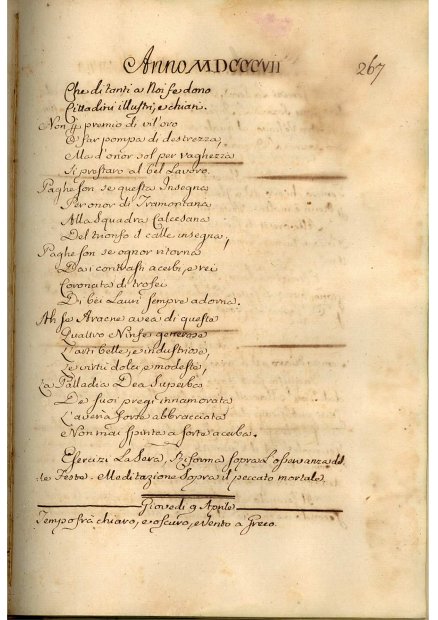 Anno MDCCCVII
267
Che di tanti a Noi fe dono
Cittadini illustri, e chiari.
Non p premio di vil'oro
E far pompa di destrezza,
Ma d'onor sol per vaghezza
Si prestaro al bel Lavoro.
Paghe son se questa Insegna
Per onor di Tramontana
Alla Squadra Calcesana
Del trionfo il calle insegna;
Paghe son se ognor ritorna
Da i contrasti acerbi, e rei
Coronata di trofei
Di bei Lauri sempre adorna.
Ah se Aracne avea di queste
Quattro Ninfe generose
L'arti belle, e industriose,
Le virtù dolci, e modeste,
La Palladia Dea Superba
De' suoi pregi innamorata
L'averia forte abbracciata
E Non mai spinta a sorte acerba.
Esercizi La Sera, Riforma sopra L'osservanza del
le Feste. Meditazione Sopra il peccato mortale.
Giovedì 9 Aprile
Tempo frà chiaro, e oscuro, e Vento a Greco.